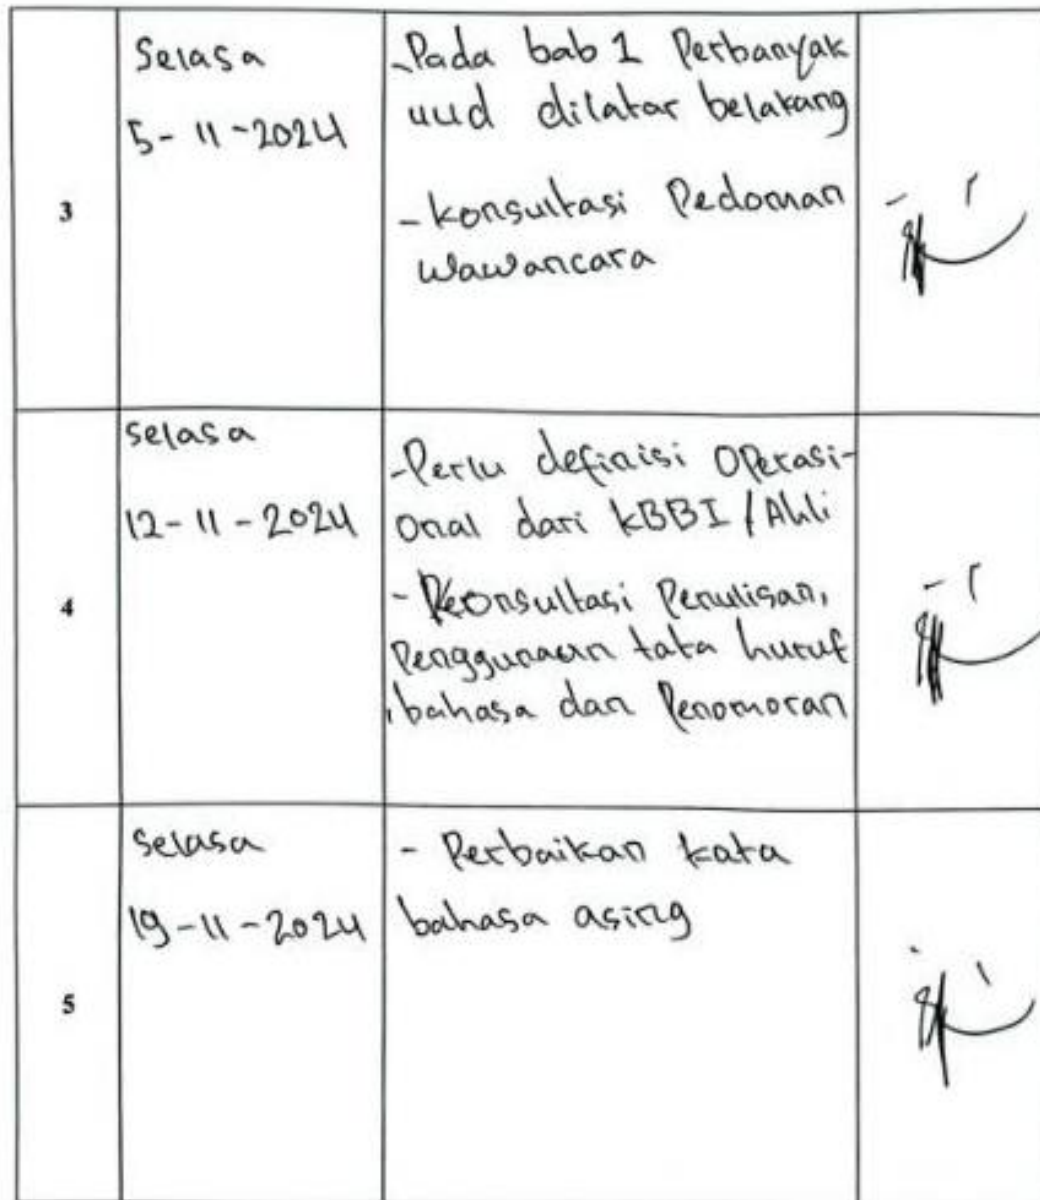 3
Selasa
5-11-2024
-Pada bab 1 Perbanyak
uud dilatar belakang
-konsultasi Pedoman
wawancara
4
selasa
12-11-2024
-Perlu definisi Operasi-
onal dari KBBI/Ahli
- Konsultasi Penulisan,
Penggunaan tata huruf
,bahasa dan Penomoran
5
selasa
19-11-2024
- Perbaikan kata
bahasa asing